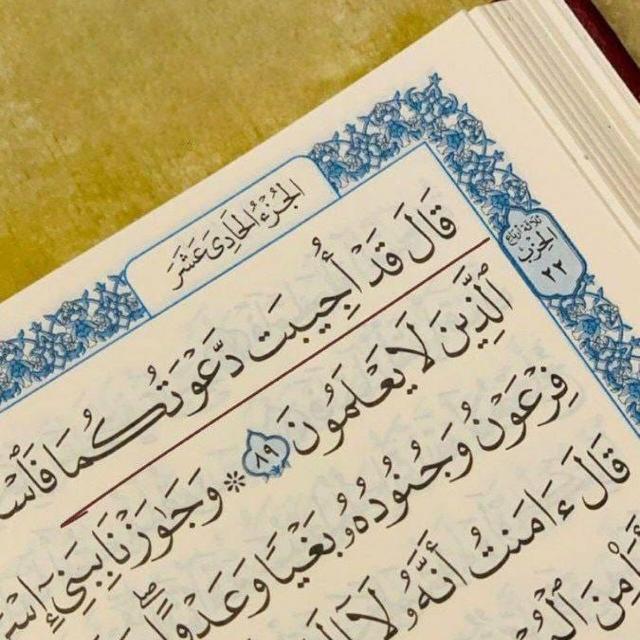 الجُزْءُ الحَادِىَ عَشَرَ
الحزب
٢٢
قَالَ قَدْ أُجِيبَت دَّعْوَتُكُمَا فَٱسْ
ٱلَّذِينَ لَا يَعْلَمُونَ ٨٩ * وَجَٰوَزْنَا بِبَنِىٓ إِسْ
فِرْعَوْنُ وَجُنُودُهُۥ بَغْيًا وَعَدْوًا
قَالَ ءَامَنتُ أَنَّهُۥ لَآ إِلَٰهَ
مِنَ